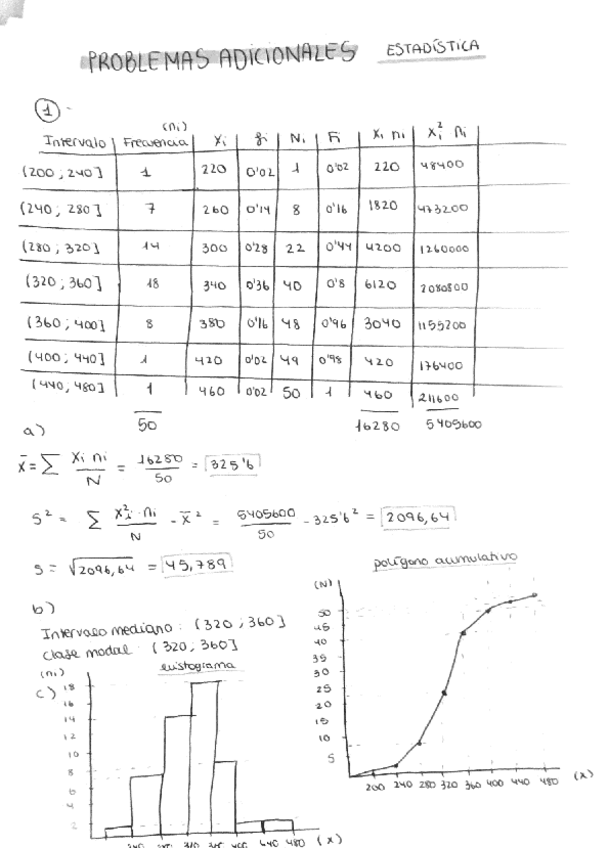 PROBLEMAS ADICIONALES ESTADÍSTICA
1 -
Intervalo | Frecuencia (ni) | Xi | fi | Ni | Fi | Xi ni | Xi² ni
(200 ; 240] 1 220 0'02 1 0'02 220 48400
(240 ; 280] 7 260 0'14 8 0'16 1820 473200
(280 ; 320] 14 300 0'28 22 0'44 4200 1260000
(320 ; 360] 18 340 0'36 40 0'8 6120 2080800
(360 ; 400] 8 380 0'16 48 0'96 3040 1155200
(400 ; 440] 1 420 0'02 49 0'98 420 176400
(440, 480] 1 460 0'02 50 1 460 211600
50 16280 5405600
a)
x̄ = ∑ Xi ni / N = 16280 / 50 = 325'6
S² = ∑ Xi² · ni / N - x̄² = 5405600 / 50 - 325'6² = 2096,64
S = √2096,64 = 45,789
b)
Intervalo mediano : (320 ; 360]
Clase modal : (320 ; 360]
c)
histograma
(ni)
18
16
14
12
10
8
6
4
2
(x)
polígono acumulativo
(N)
50
45
40
35
30
25
20
15
10
5
200 240 280 320 360 400 440 480 (x)